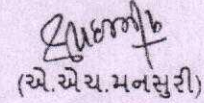 (એ.એચ.મનસુરી)